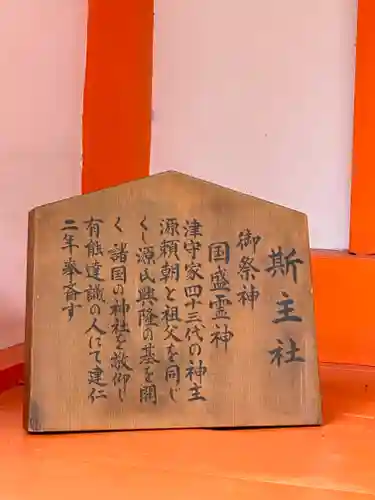 斯主社
御祭神
国盛霊神
津守家四十三代の神主
源頼朝と祖父を同じ
くし源氏興隆の基を開
く 諸国の神社を敬仰し
有能達識の人にて建仁
二年挙斎す